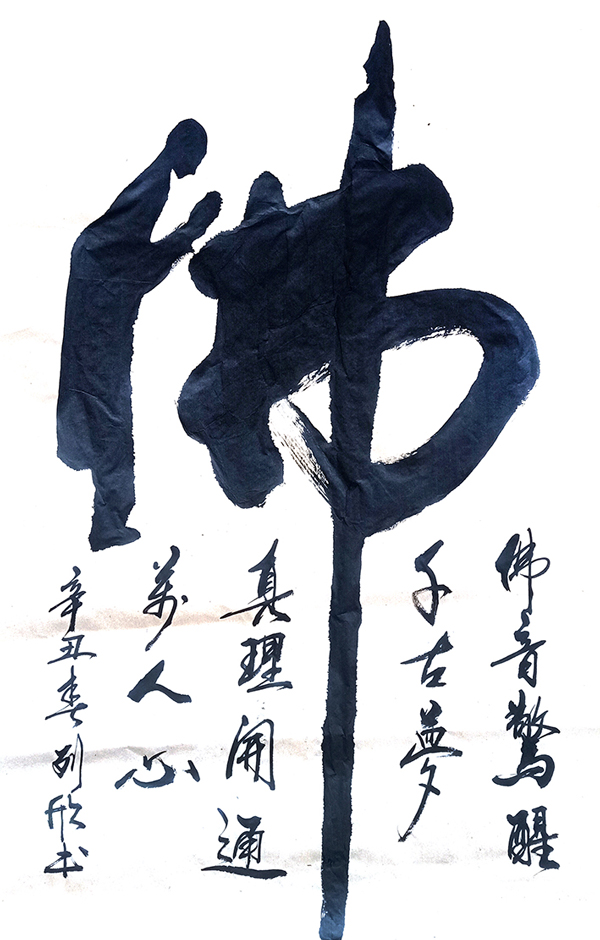 佛
佛音驚醒
千古夢
真理開通
萬人心
辛丑春刘欣书